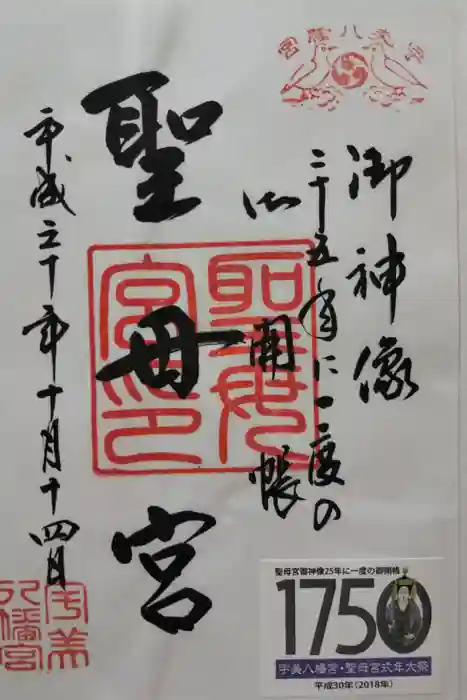 宇美八幡宮
御神像
二十五年に一度の
御開帳
聖母宮
聖母宮印
平成三十年十月十四日
宇美八幡宮
聖母宮御神像25年に一度の御開帳
1750
宇美八幡宮・聖母宮式年大祭
平成30年(2018年)